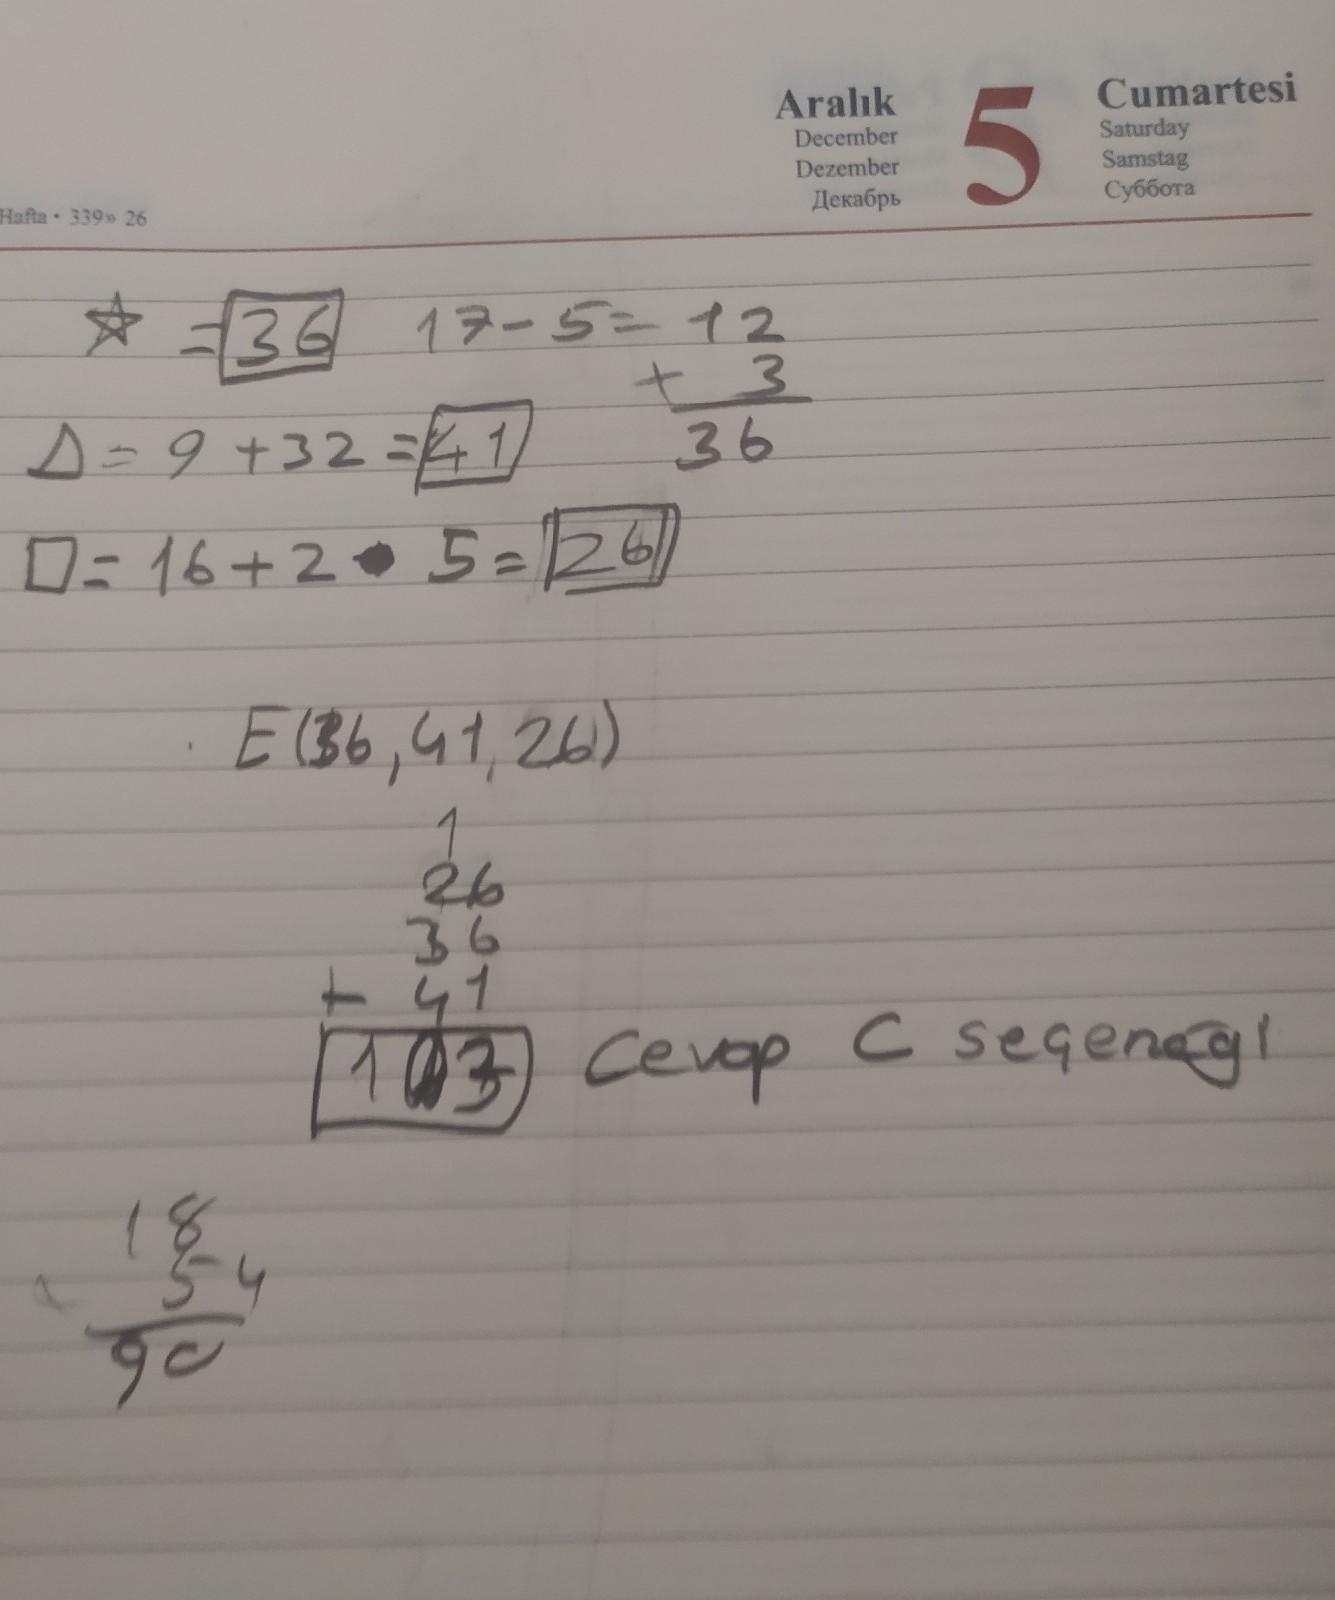 Aralık 5 Cumartesi
December Saturday
Dezember Samstag
Декабрь Суббота
Hafta • 339» 26
☆ = 36 17 - 5 = 12
+ 3
36
Δ = 9 + 32 = 41
□ = 16 + 2 • 5 = 26
E(36, 41, 26)
1
26
36
+ 41
103 Cevap C seçeneği
18
x 5 4
90